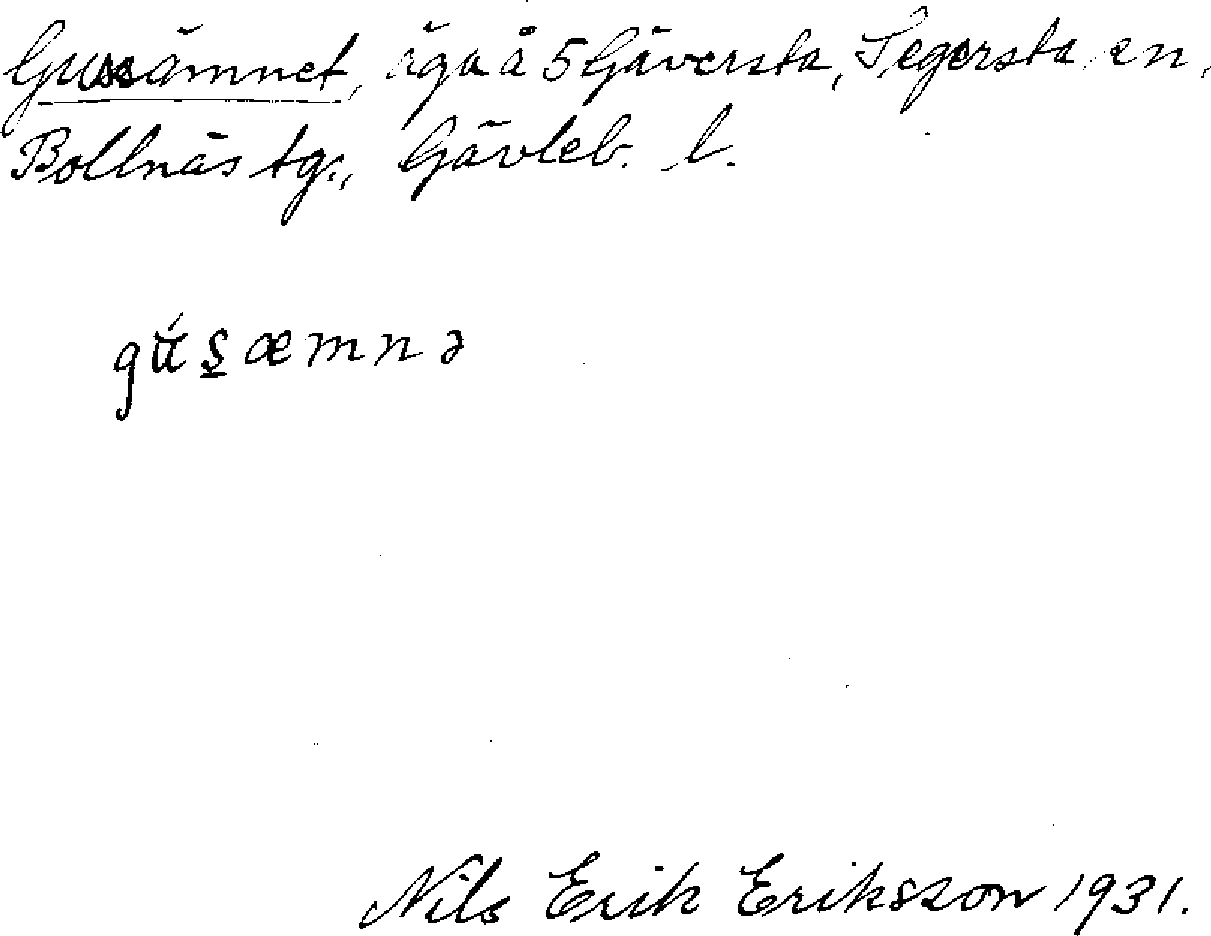 Gussämnet, äga å 5 Gäversta, Segersta sn,
Bollnäs tg., Gävleb. l.
gu̇́s̲æmnə
Nils Erik Eriksson 1931.